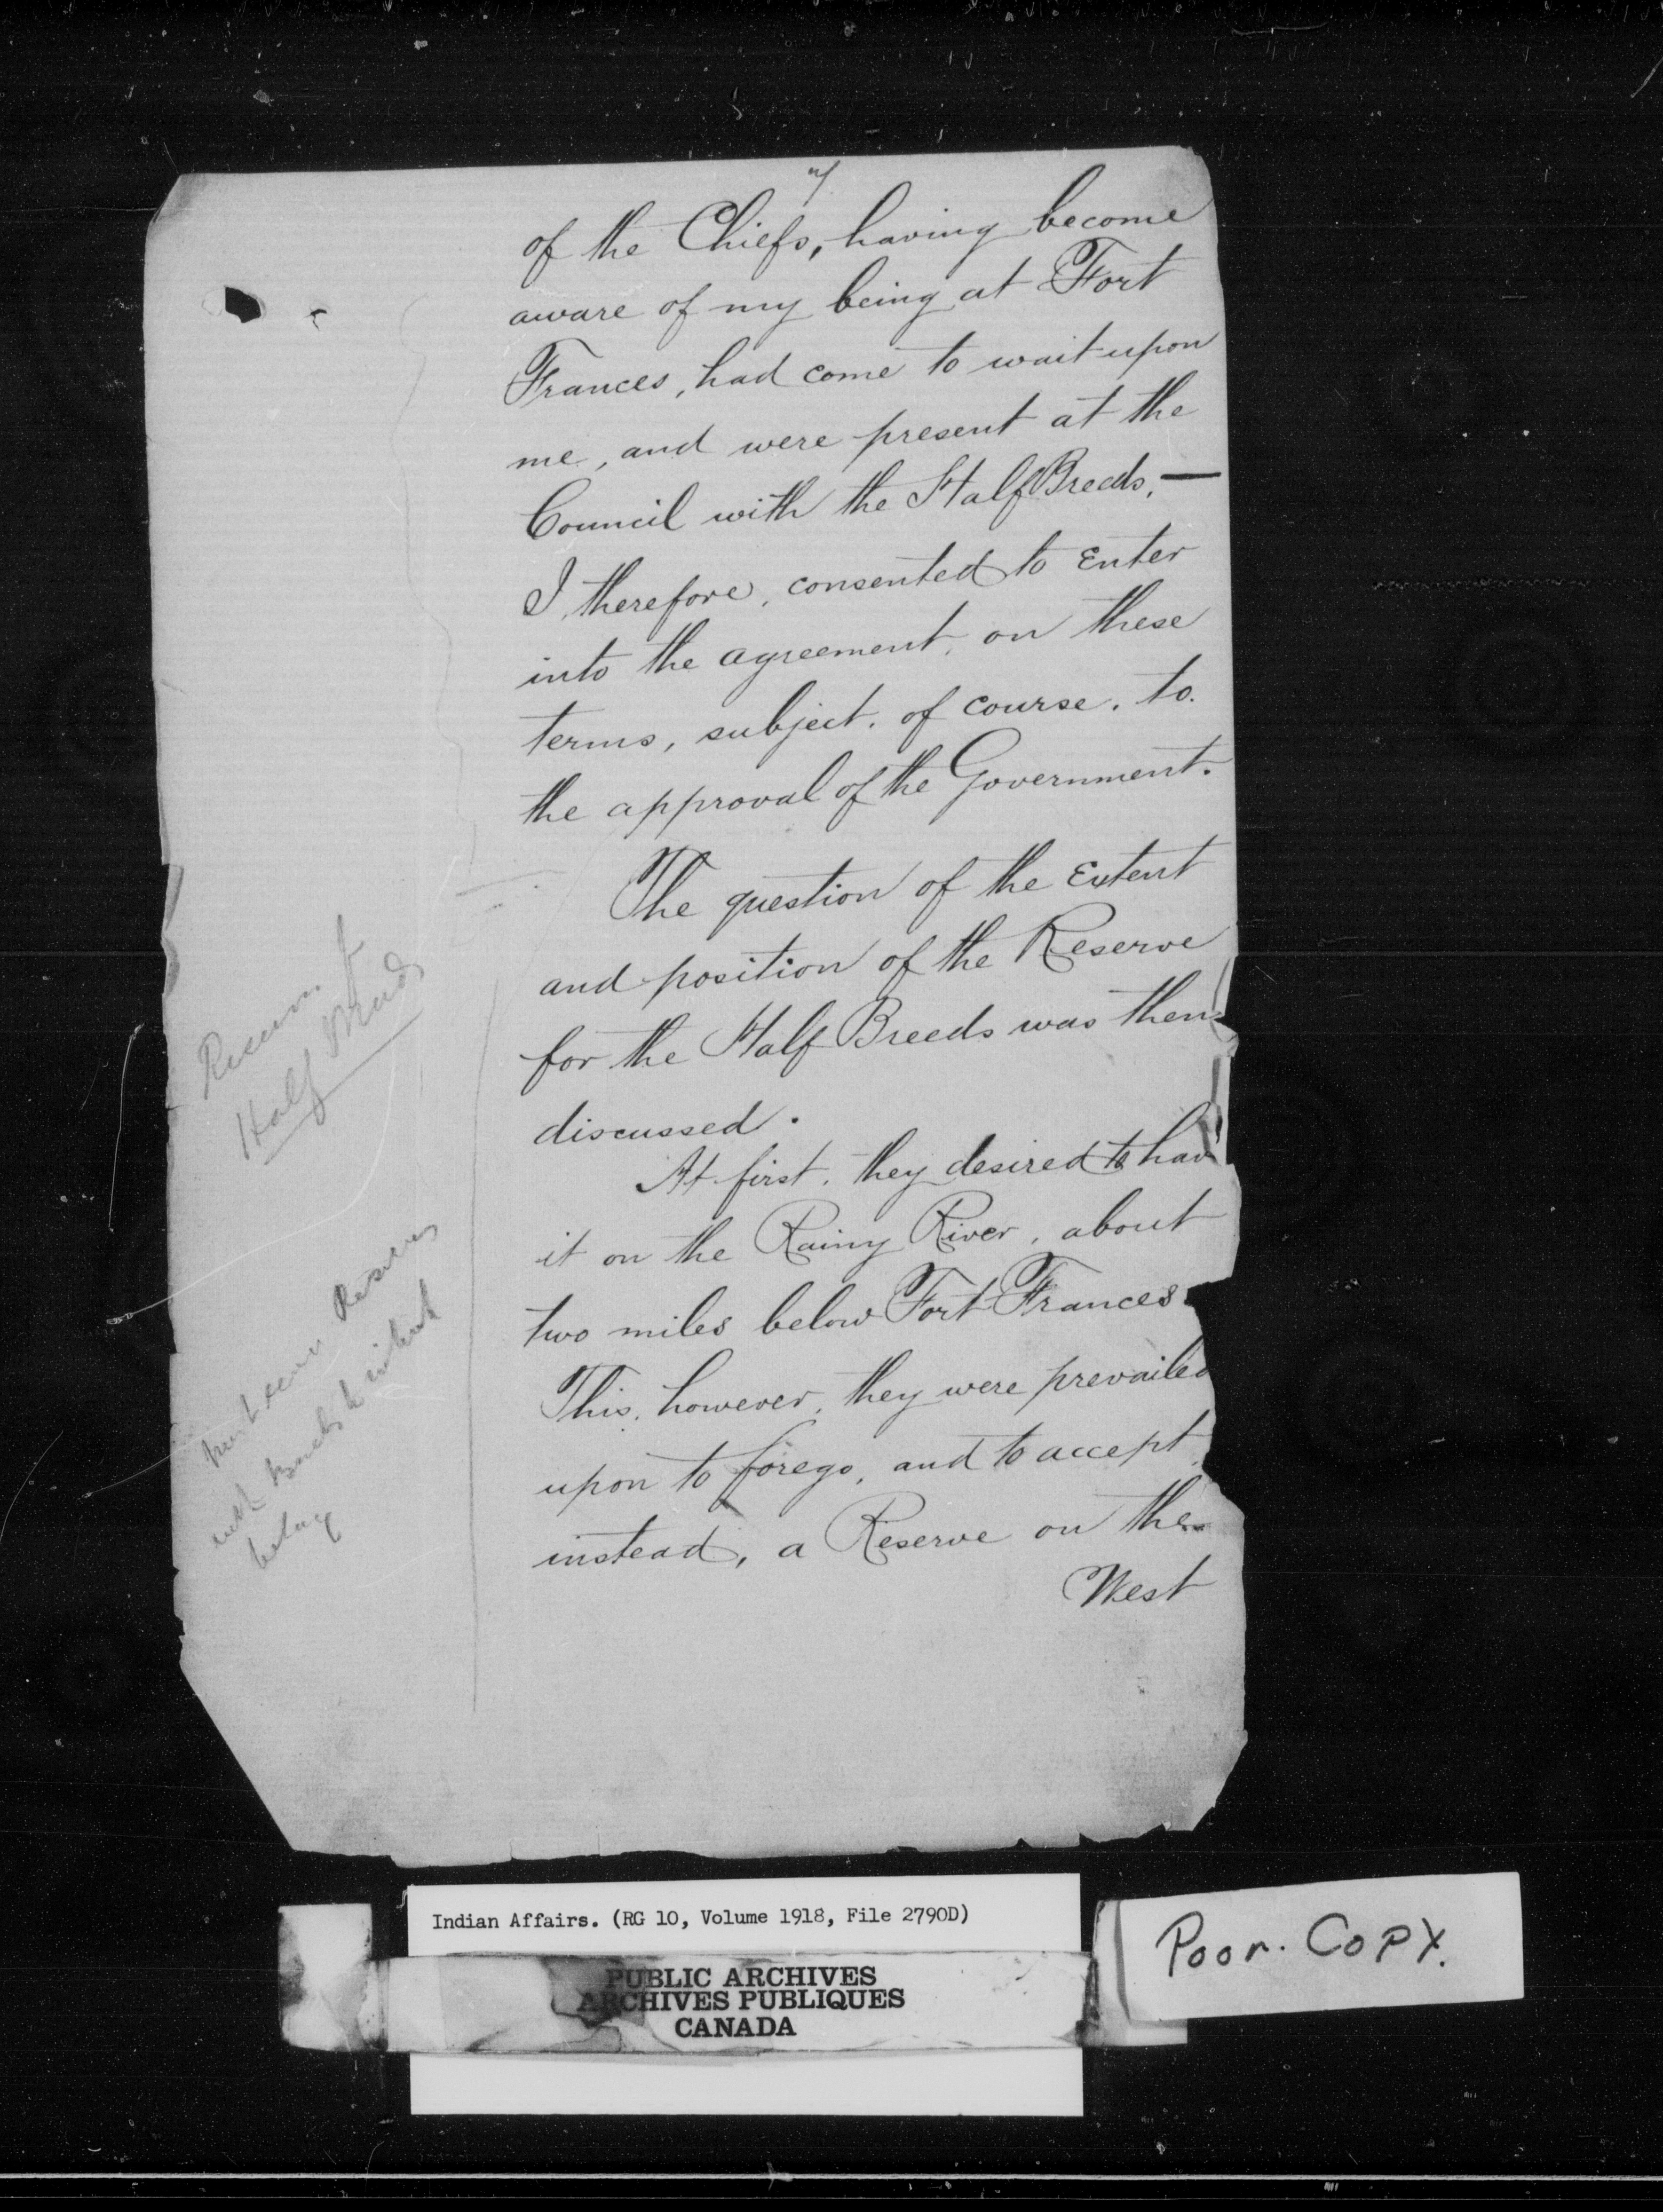 of the Chiefs, having become
aware of my being at Fort
Frances, had come to wait upon
me, and were present at the
Council with the Half Breeds. —
I, therefore, consented to Enter
into the agreement, on these
terms, subject, of course, to
the approval of the Government.
The question of the Extent
and position of the Reserve
for the Half Breeds was then
discussed.
At first, they desired to hav
it on the Rainy River, about
two miles below Fort Frances
This, however, they were prevailed
upon to forego, and to accept,
instead, a Reserve on the
West
Half Breeds
Reserves
Indian Affairs. (RG 10, Volume 1918, File 2790D)
PUBLIC ARCHIVES
ARCHIVES PUBLIQUES
CANADA
Poor. Copy.